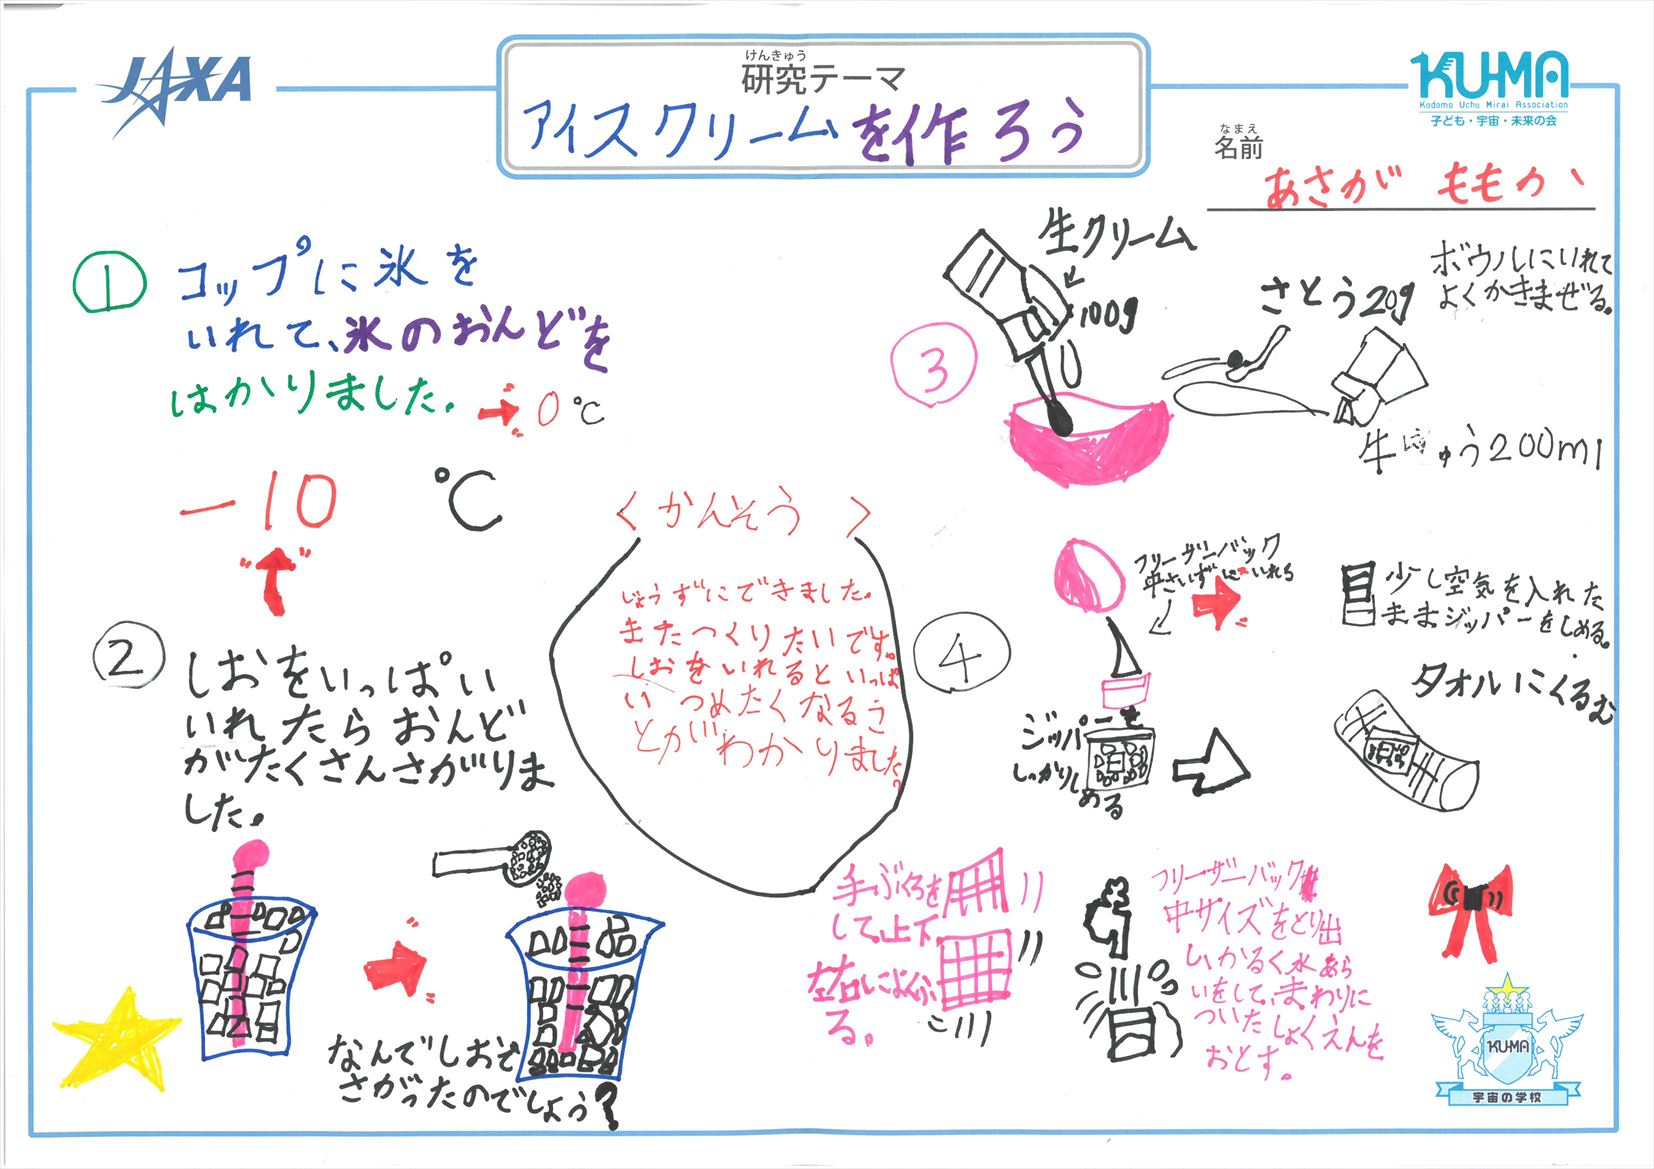 JAXA
けんきゅう
研究テーマ
アイスクリームを作ろう
KU-MA
Kodomo Uchu Mirai Association
子ども・宇宙・未来の会
なまえ
名前
あさが ももか
①
コップに氷を
いれて、氷のおんどを
はかりました。→0℃
-10 ℃
②
しおをいっぱい
いれたらおんど
がたくさんさがりま
した。
なんでしおで
さがったのでしょう?
<かんそう>
じょうずにできました。
またつくりたいです。
しおをいれるといっぱ
いつめたくなるう
とがわかりました。
③
生クリーム
100g
さとう20g
ボウルにいれて
よくかきまぜる。
牛にゅう200ml
④
フリーザーバック
中さいずにいれる
ジッパーを
しっかりし
める
少し空気を入れた
ままジッパーをしめる。
タオルにくるむ
手ぶくろを
して、上下
左右によくふ
る。
フリーザーバック
中サイズをとり出
し、かるく水あら
いをして、まわりに
ついたしょくえんを
おとす。
KU-MA
宇宙の学校